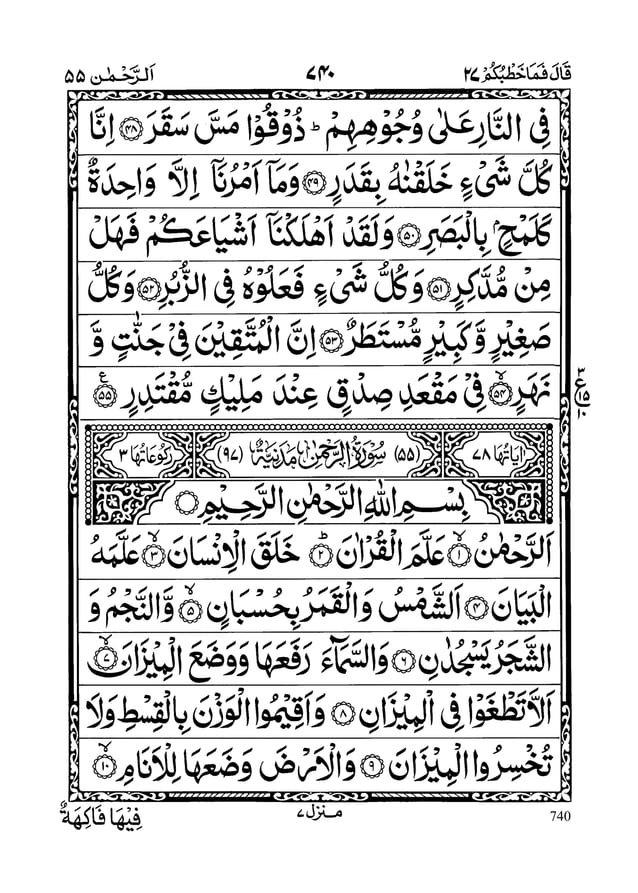 قَالَ فَمَا خَطْبُكُمْ ٢٧ ٧٤٠ اَلرَّحْمٰن ٥٥
فِى النَّارِ عَلٰى وُجُوْهِهِمْ ؕ ذُوْقُوْا مَسَّ سَقَرَ ﴿٤٨﴾ اِنَّا
كُلَّ شَىْءٍ خَلَقْنٰهُ بِقَدَرٍ ﴿٤٩﴾ وَمَاۤ اَمْرُنَاۤ اِلَّا وَاحِدَةٌ
كَلَمْحٍۭ بِالْبَصَرِ ﴿٥٠﴾ وَلَقَدْ اَهْلَكْنَاۤ اَشْيَاعَكُمْ فَهَلْ
مِنْ مُّدَّكِرٍ ﴿٥١﴾ وَكُلُّ شَىْءٍ فَعَلُوْهُ فِى الزُّبُرِ ﴿٥٢﴾ وَكُلُّ
صَغِيْرٍ وَّكَبِيْرٍ مُّسْتَطَرٌ ﴿٥٣﴾ اِنَّ الْمُتَّقِيْنَ فِىْ جَنّٰتٍ وَّ
نَهَرٍ ﴿٥٤﴾ۙ فِىْ مَقْعَدِ صِدْقٍ عِنْدَ مَلِيْكٍ مُّقْتَدِرٍ ﴿٥٥﴾ ع
٣ ع ١٥ ١٠
اٰيَاتُهَا ٧٨ (٥٥) سُوْرَةُ الرَّحْمٰنِ مَدَنِيَّةٌ (٩٧) رُكُوْعَاتُهَا ٣
بِسْمِ اللهِ الرَّحْمٰنِ الرَّحِيْمِ
اَلرَّحْمٰنُ ﴿١﴾ۙ عَلَّمَ الْقُرْاٰنَ ﴿٢﴾ؕ خَلَقَ الْاِنْسَانَ ﴿٣﴾ۙ عَلَّمَهُ
الْبَيَانَ ﴿٤﴾ اَلشَّمْسُ وَالْقَمَرُ بِحُسْبَانٍ ﴿٥﴾ۙ وَّالنَّجْمُ وَ
الشَّجَرُ يَسْجُدٰنِ ﴿٦﴾ وَالسَّمَآءَ رَفَعَهَا وَوَضَعَ الْمِيْزَانَ ﴿٧﴾ۙ
اَلَّا تَطْغَوْا فِى الْمِيْزَانِ ﴿٨﴾ وَاَقِيْمُوا الْوَزْنَ بِالْقِسْطِ وَلَا
تُخْسِرُوا الْمِيْزَانَ ﴿٩﴾ وَالْاَرْضَ وَضَعَهَا لِلْاَنَامِ ﴿١٠﴾ۙ
740 منزل ٧ فِيْهَا فَاكِهَةٌ